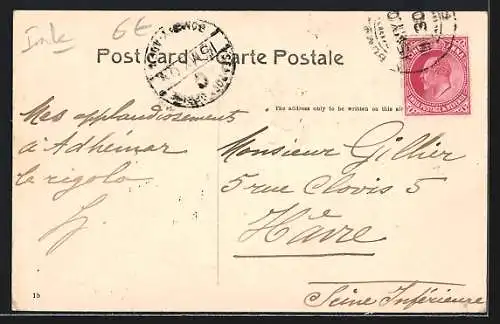 Inde 6E
Post Card Carte Postale
The address only to be written on this
Mes applaudissements
à Adhémar
le rigolo
Monsieur Gillier
5 rue Clovis 5
Hâvre
Seine Inférieure
INDIA POSTAGE & REVENUE
ONE ANNA
1b